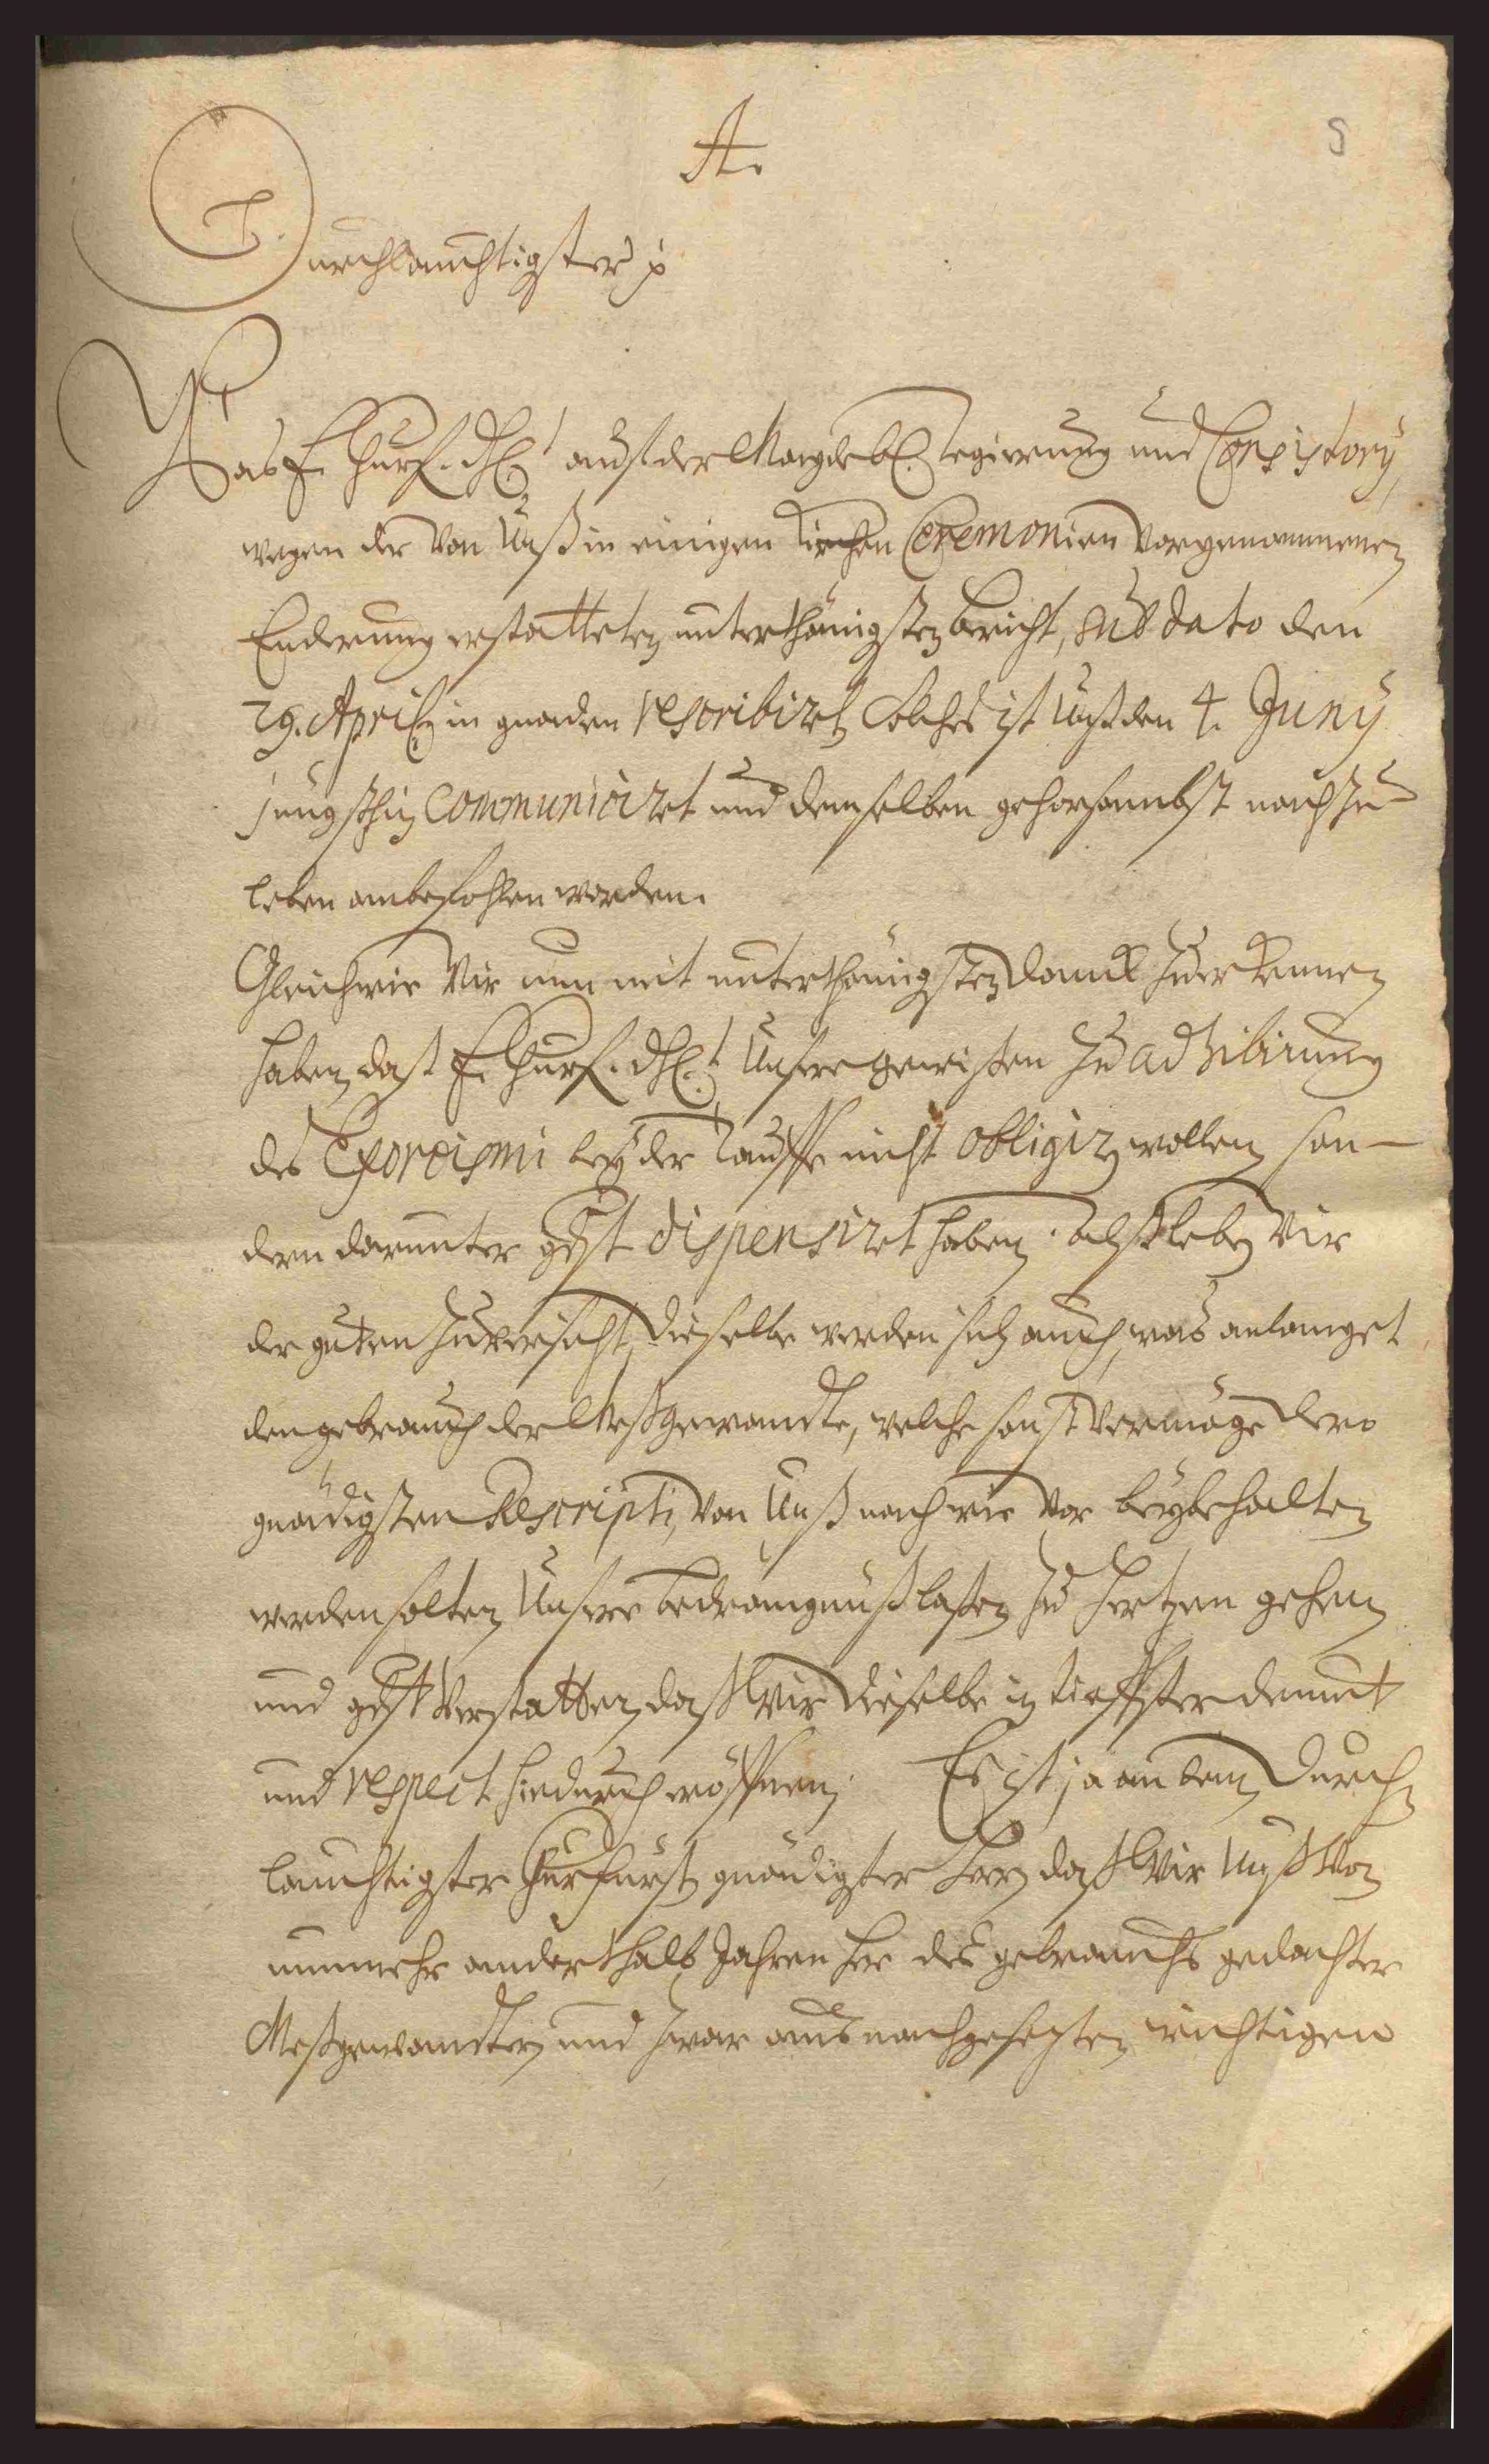 A.
5
Durchlauchtigster p
Was E. Churf. Dhl. auf der Magdeb. Regierung und Consistory,
wegen der von Unß in einigen Kirchen Ceremonien vorgenommenen
Enderung erstatteten unterthänigsten bericht, sub dato den
29. April. in gnaden rescribiret, Solches ist Unß den 4. Juny
jüngsthin communiciret und demselben gehorsambst nachzu
leben anbefohlen worden.
Gleichwie Wir nun mit unterthänigsten Danck zuerkennen
haben, daß E. Churf. Dhl. Unsere gewißen zu adhibirung
des Exorcismi bey der Tauffe nicht obligiren wollen, son-
dern darunter gdst dispensiret haben. Alß leben Wir
der guten Zuversicht, dieselbe werden sich auch, was anlanget
den gebrauch der Meßgewandte, welche sonst vermöge dero
gnädigsten Rescripti, von Unß nach wie vor beybehalten
werden solten, Unsere bedrängnuß laßen zu Hertzen gehen,
und gdst verstatten, daß Wir dieselbe in tieffster demut
und respect hiedurch eröffnen. Es ist ja an dem, Durch
lauchtigster Churfürst, gnädigster Herr, daß Wir Unß von
nunmehr anderthalb Jahren her des gebrauchs gedachter
Meßgewandten, und zwar aus nachgesetzten wichtigen